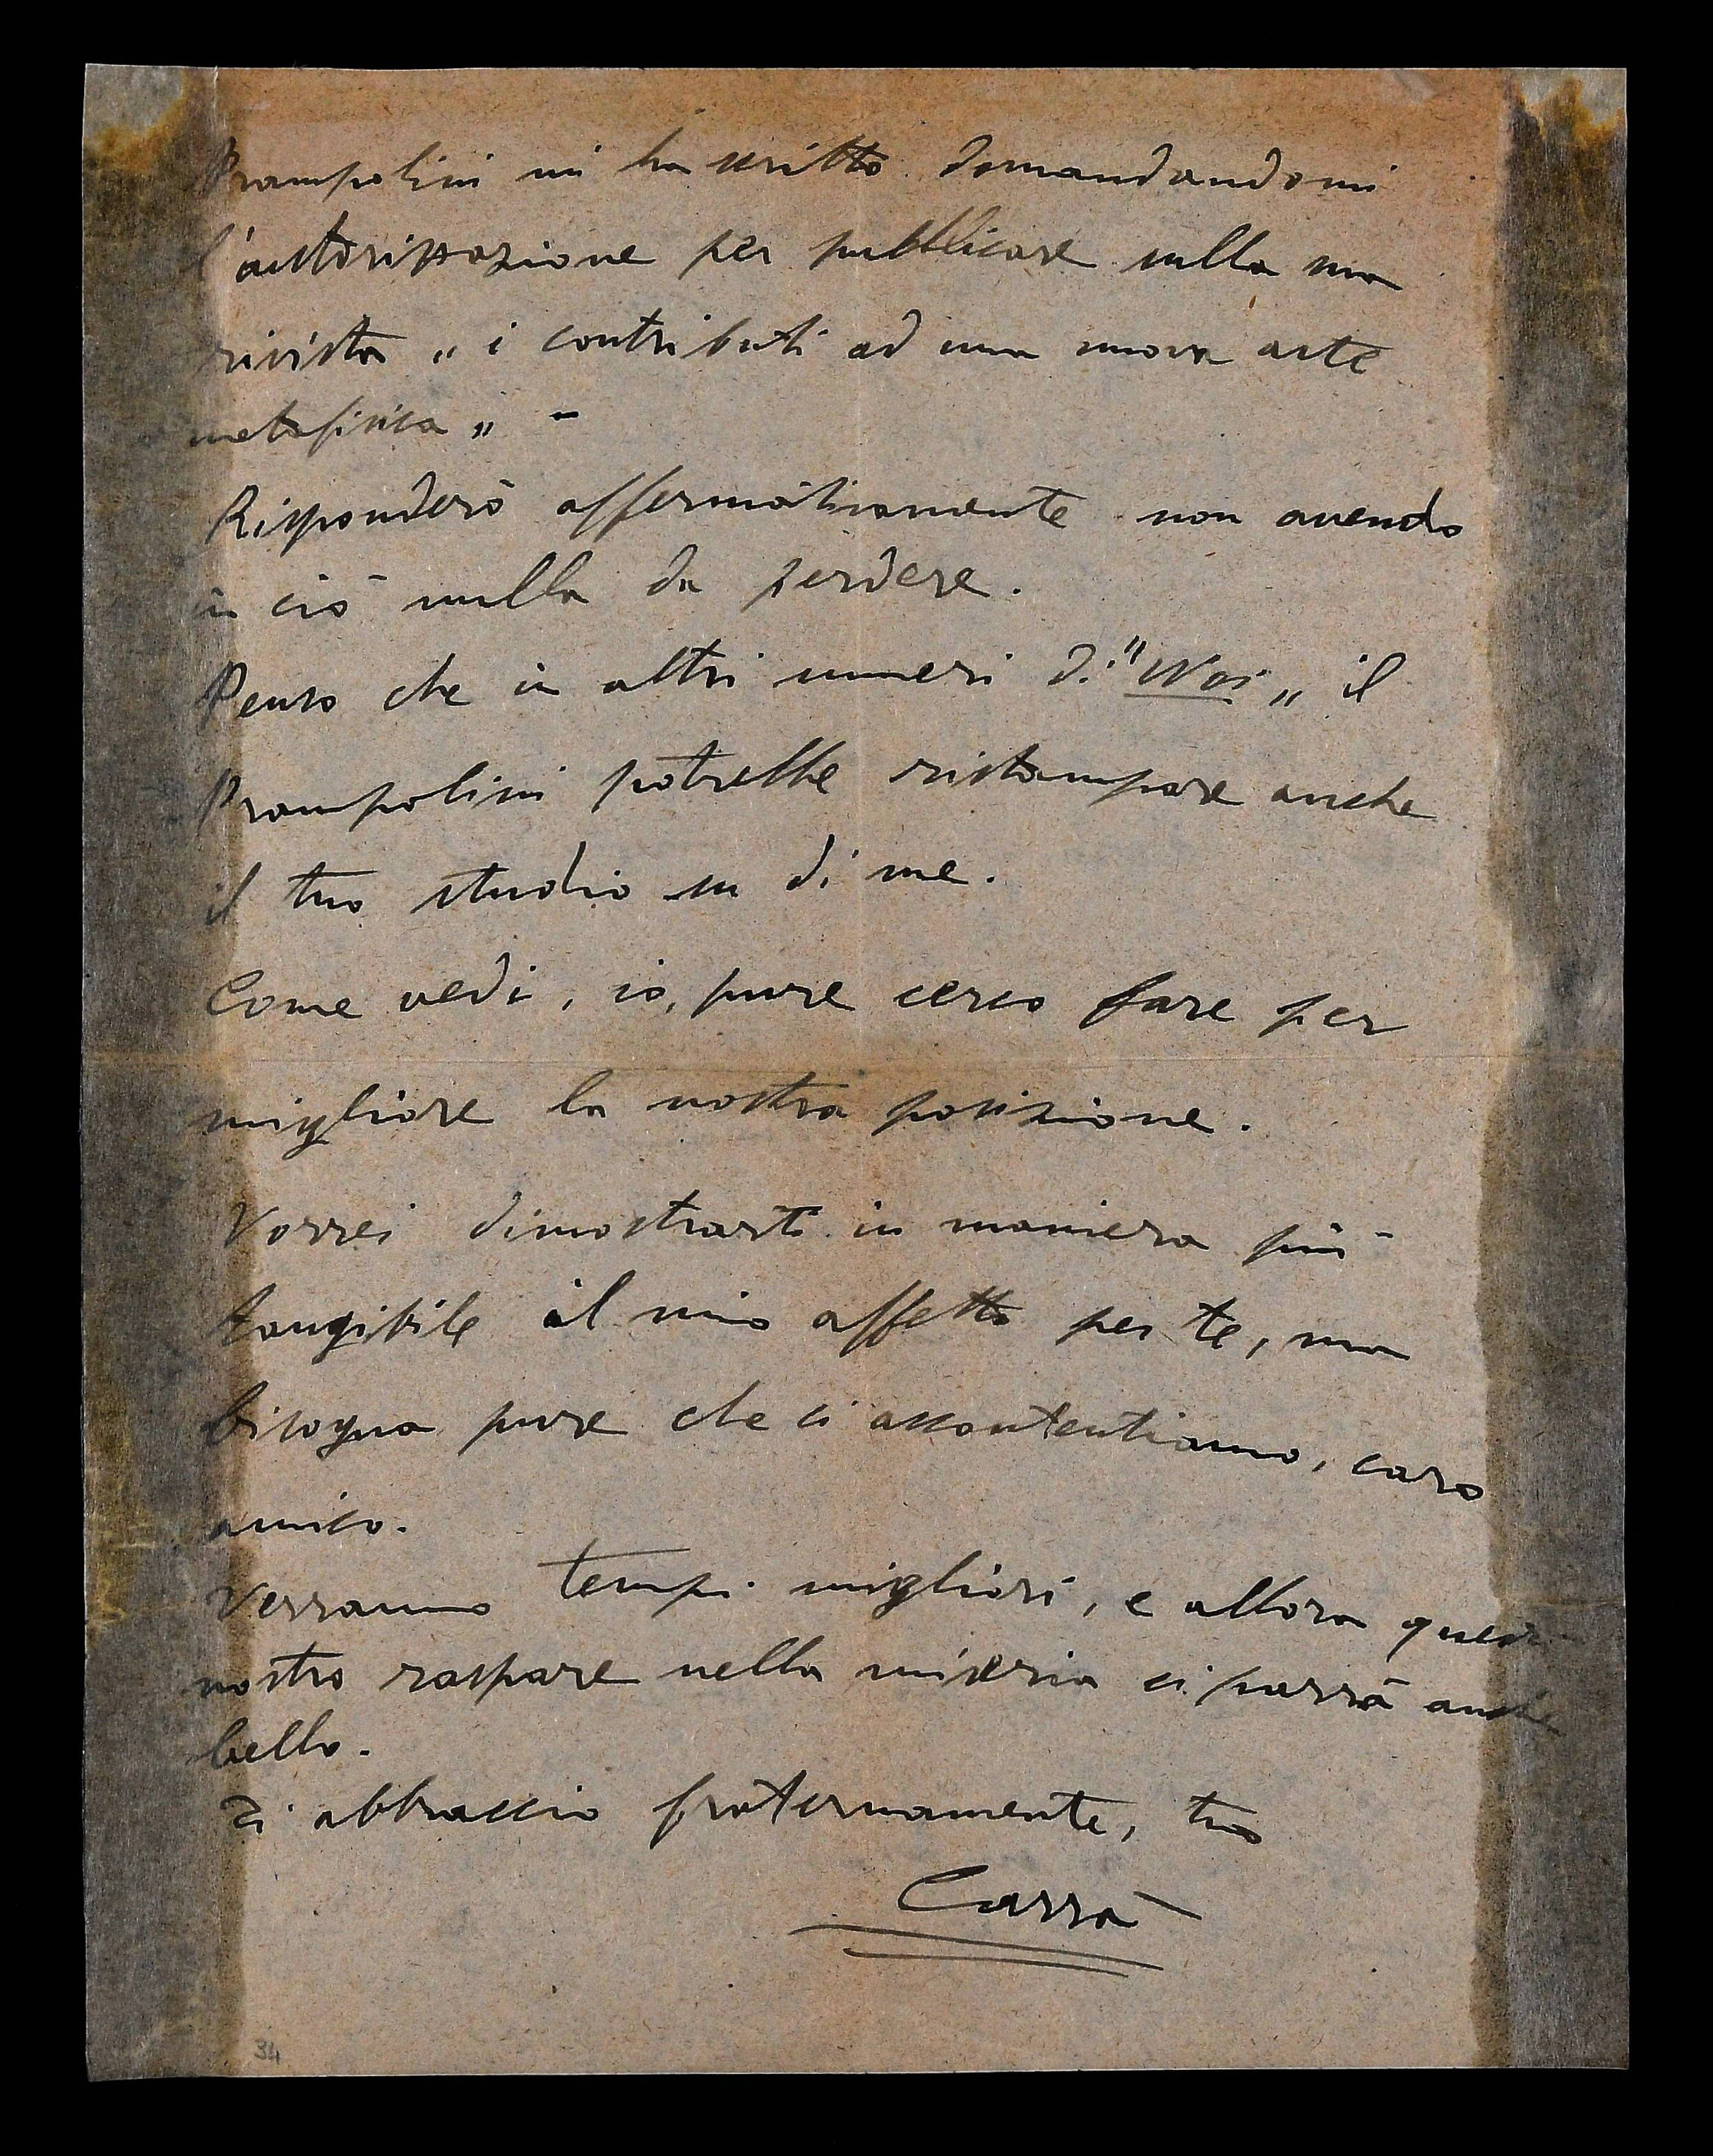 Prampolini mi ha scritto domandandomi
l'autorizzazione per pubblicare sulla sua
rivista „ i contributi ad una nuova arte
metafisica „ -
Risponderò affermativamente non avendo
in ciò nulla da perdere.
Penso che in altri numeri di "Noi „ il
Prampolini potrebbe ristampare anche
il tuo studio su di me.
Come vedi, io, pure cerco fare per
migliore la nostra posizione.
Vorrei dimostrarti in maniera più
tangibile il mio affetto per te, ma
bisogna pure che ci accontentiamo, caro
amico.
Verranno tempi migliori, e allora questo
nostro raspare nella miseria ci parrà anche
bello.
Ti abbraccio fraternamente, tuo
Carrà
34